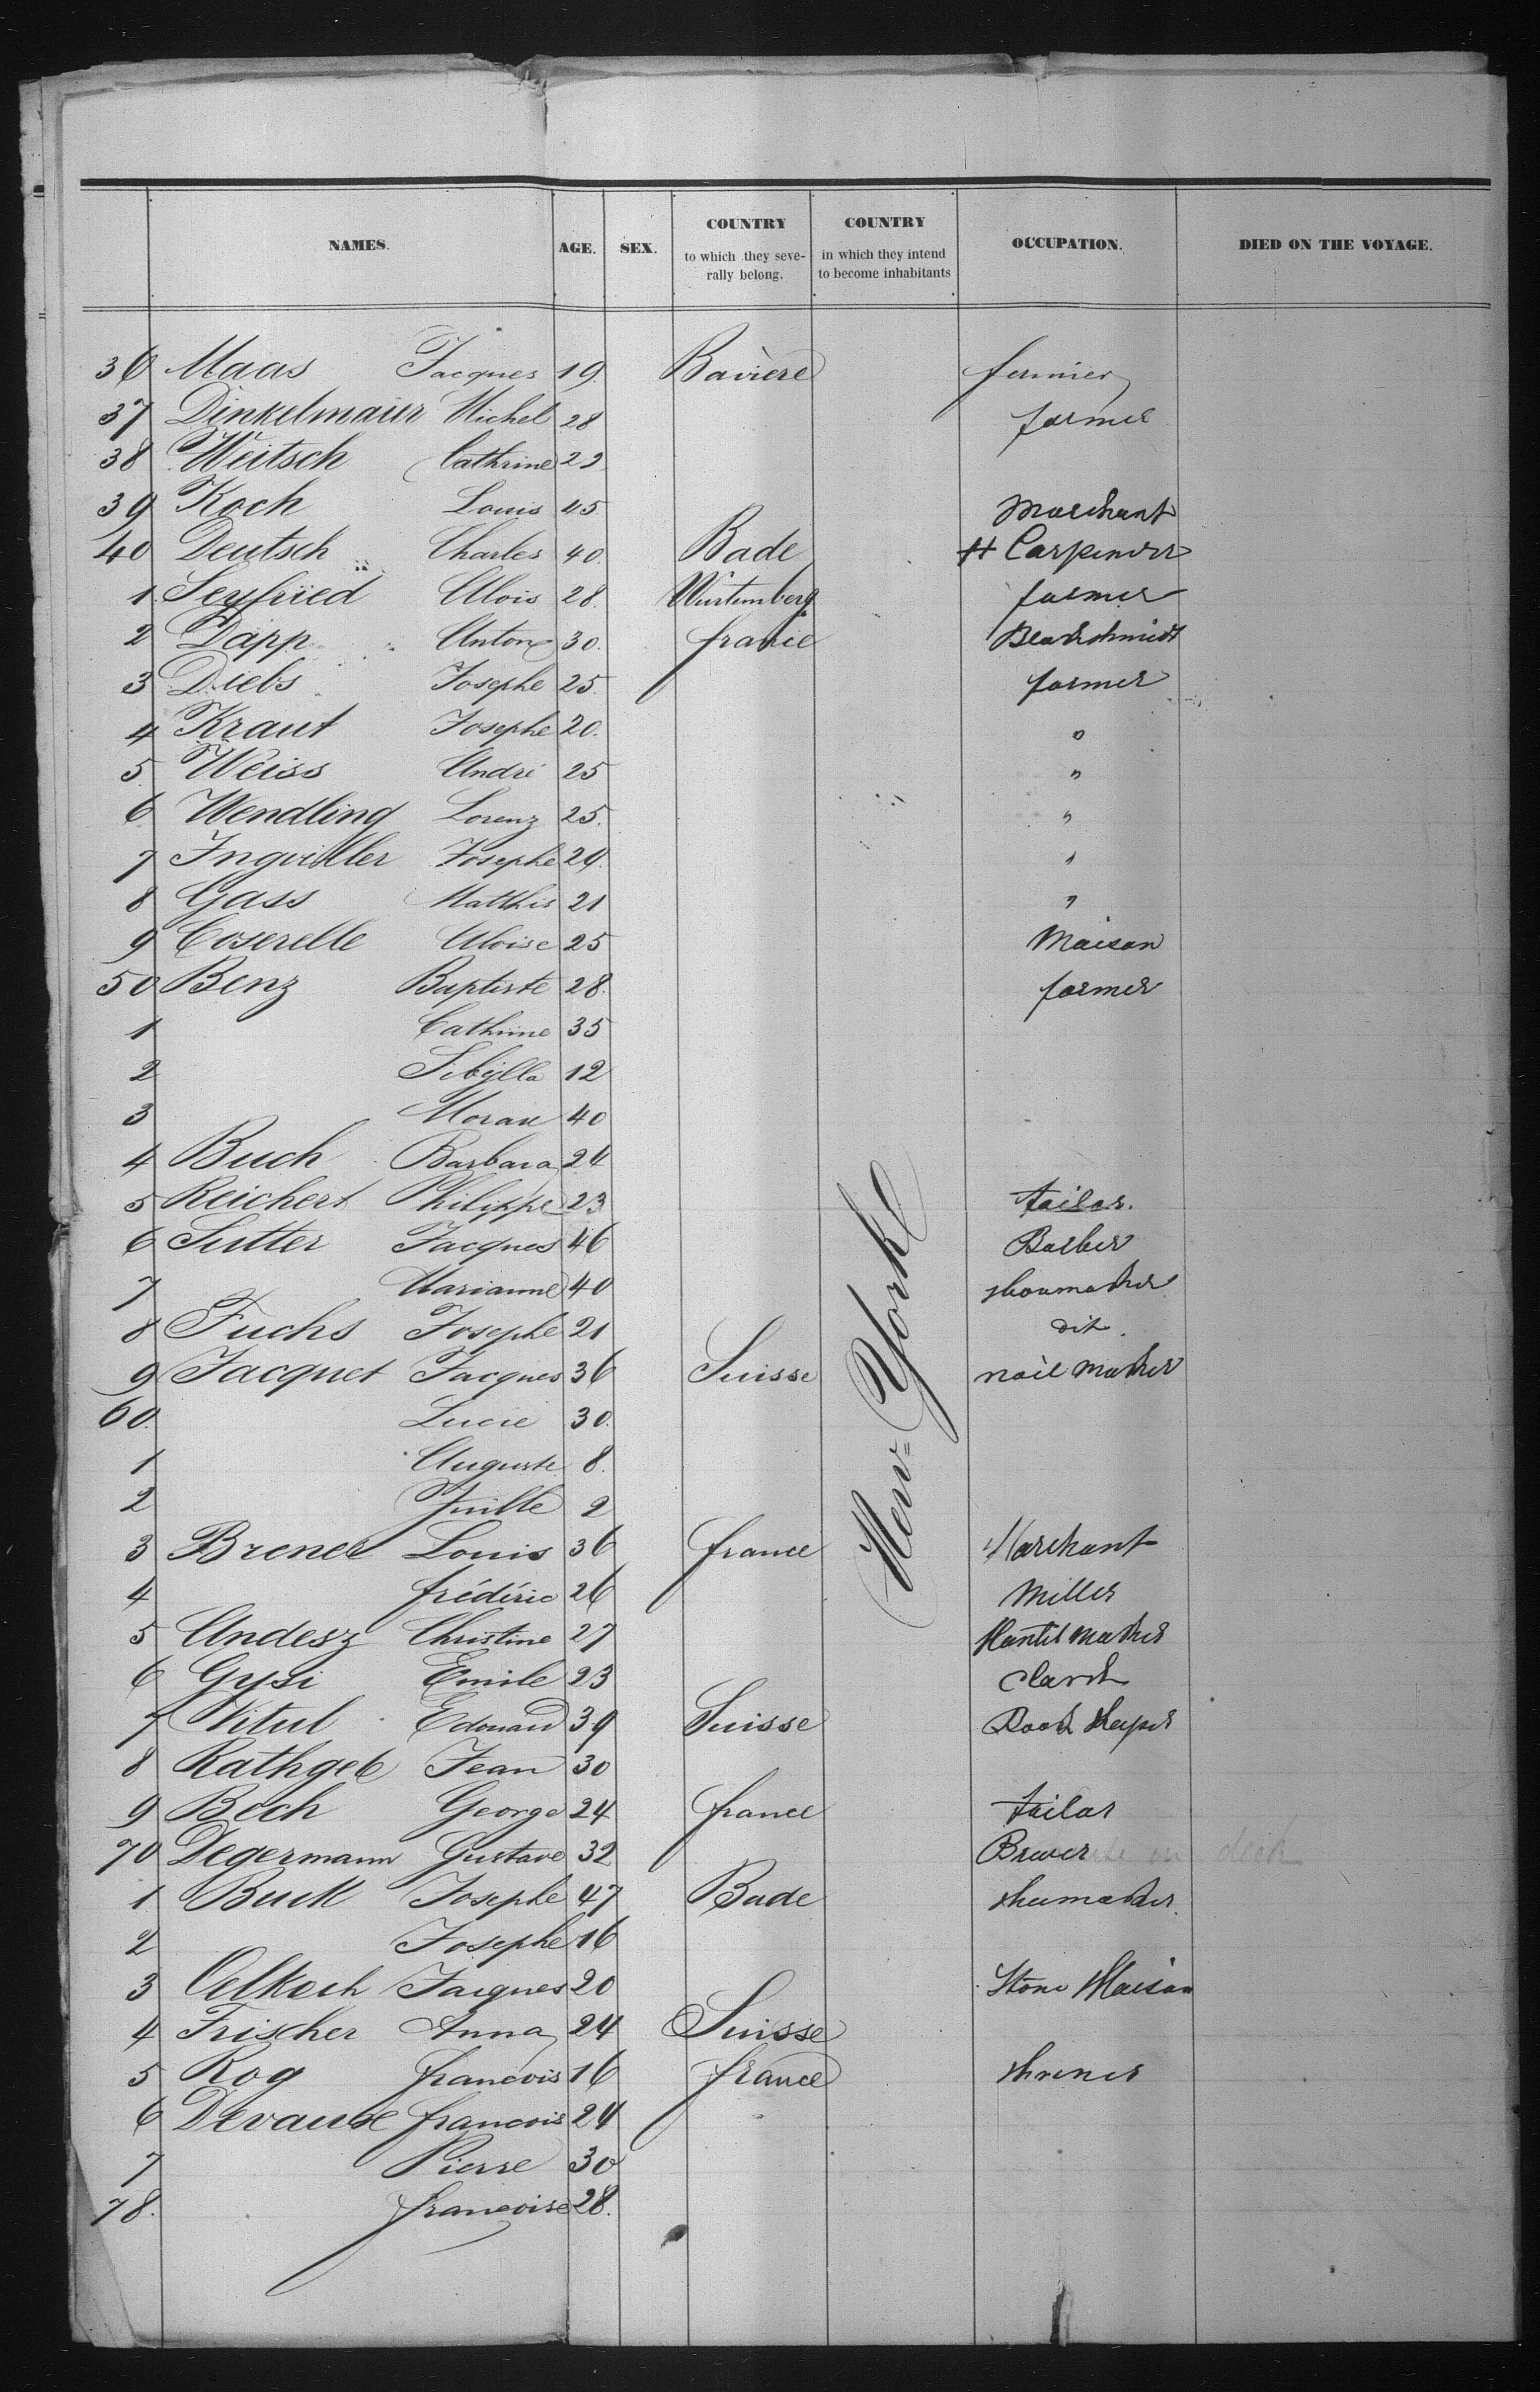 NAMES. AGE. SEX. COUNTRY to which they seve- rally belong. COUNTRY in which they intend to become inhabitants OCCUPATION. DIED ON THE VOYAGE.
36 Maas Jacques 19 Bavière fermier
37 Dinkelmaier Michel 28 farmer
38 Weitsch Cathrine 29
39 Koch Louis 45 Marchant
40 Deutsch Charles 40 Bade Carpender
1 Seyfried Alois 28 Würtemberg farmer
2 Dapp Anton 30 france
3 Diebs Josephe 25 farmer
4 Kraut Josephe 20 "
5 Weiss André 25 "
6 Wendling Lorenz 25 "
7 Ingwiller Josephe 24 "
8 Gass Matthis 21 "
9 Coserelle Aloise 25 Maison
50 Benz Baptiste 28 farmer
1 Cathrine 35
2 Sibylla 12
3 Moran 40
4 Buch Barbara 24
5 Reichert Philippe 23 tailar.
6 Sutter Jacques 46 Barber
7 Marianne 40 shoumacher
8 Fuchs Josephe 21 dit.
9 Jacquet Jacques 36 Suisse nail macher
60 Lucie 30
1 Auguste 8
2 2
3 Brenel Louis 36 france Marchant
4 frédéric 26 Miller
5 Andesz Christine 27 macher
6 Gysi Emile 23 Clarck
7 Vitul Edouard 39 Suisse
8 Rathgeb Jean 30
9 Bech George 24 france tailar
70 Degermann Gustave 32 Brewer
1 Buck Josephe 47 Bade shumacher
2 Josephe 16
3 Oelkoch Jacques 20 Stone Maison
4 Frischer Anna 24 Suisse
5 Rog francois 16 france
6 Devaux francois 24
7 Pierre 30
78 francoise 28
New-York